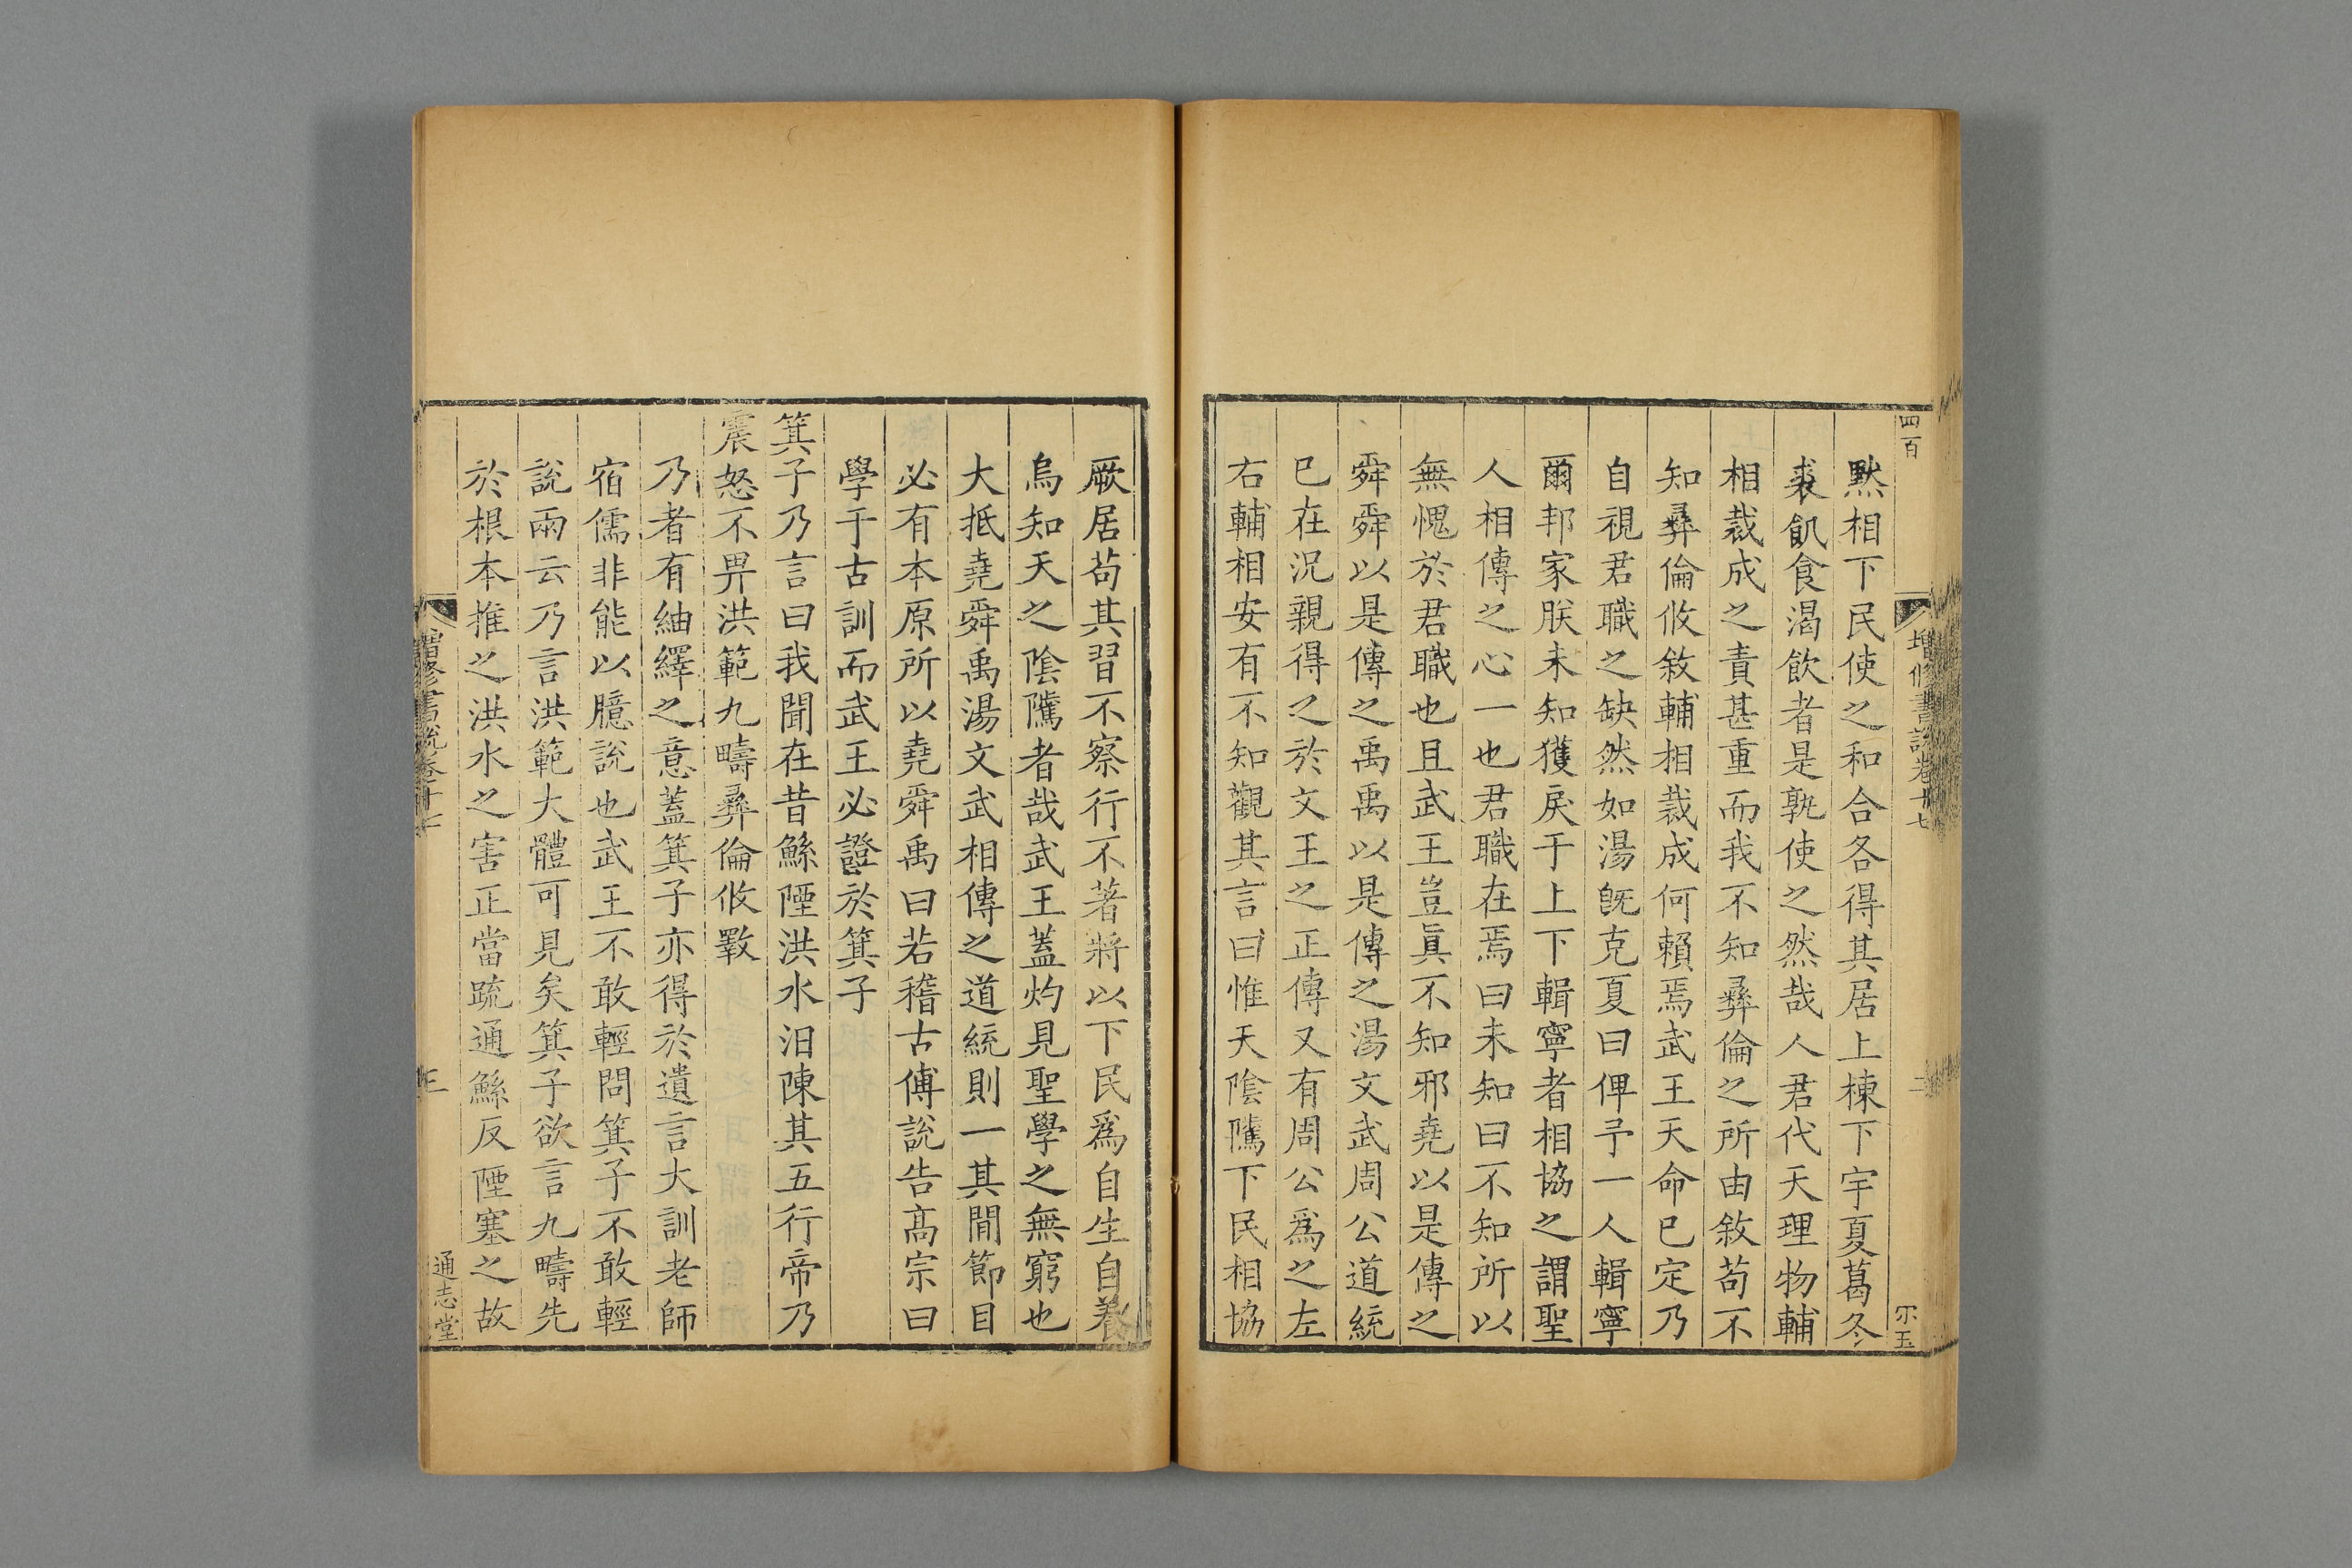 四百
增修書說卷十七
三
尔玉
默相下民使之和合各得其居上棟下宇夏葛冬
裘飢食渴飲者是孰使之然哉人君代天理物輔
相裁成之責甚重而我不知彝倫之所由敘苟不
知彝倫攸敘輔相裁成何賴焉武王天命已定乃
自視君職之缺然如湯旣克夏曰俾予一人輯寧
爾邦家朕未知獲戾于上下輯寧者相協之謂聖
人相傳之心一也君職在焉曰未知曰不知所以
無愧於君職也且武王豈眞不知邪堯以是傳之
舜舜以是傳之禹禹以是傳之湯文武周公道統
已在況親得之於文王之正傳又有周公爲之左
右輔相安有不知觀其言曰惟天陰隲下民相協
厥居苟其習不察行不著將以下民爲自生自養
烏知天之陰隲者哉武王蓋灼見聖學之無窮也
大抵堯舜禹湯文武相傳之道統則一其間節目
必有本原所以堯舜禹曰若稽古傅說告高宗曰
學于古訓而武王必證於箕子
箕子乃言曰我聞在昔鯀陻洪水汨陳其五行帝乃
震怒不畀洪範九疇彝倫攸斁
乃者有紬繹之意蓋箕子亦得於遺言大訓老師
宿儒非能以臆說也武王不敢輕問箕子不敢輕
說兩云乃言洪範大體可見矣箕子欲言九疇先
於根本推之洪水之害正當疏通鯀反陻塞之故
增修書說卷十七
三
通志堂